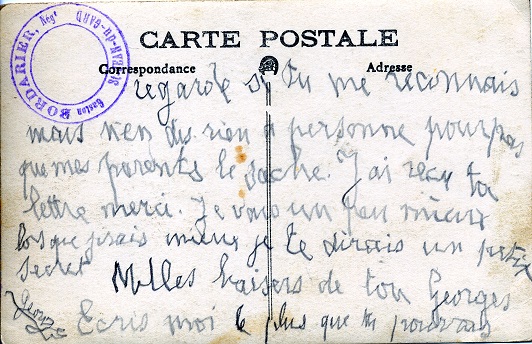 CARTE POSTALE
Correspondance Adresse
Gaston BORDARIER, Négt
regarde si tu me reconnais
mais n'en dis rien a personne pour pas
que mes parents le sache. J'ai recu ta
lettre merci. Je vais un peu mieux
lorsque je te dirais un petit
secret Milles baisers de ton Georges
Ecris moi le plus que tu pourras